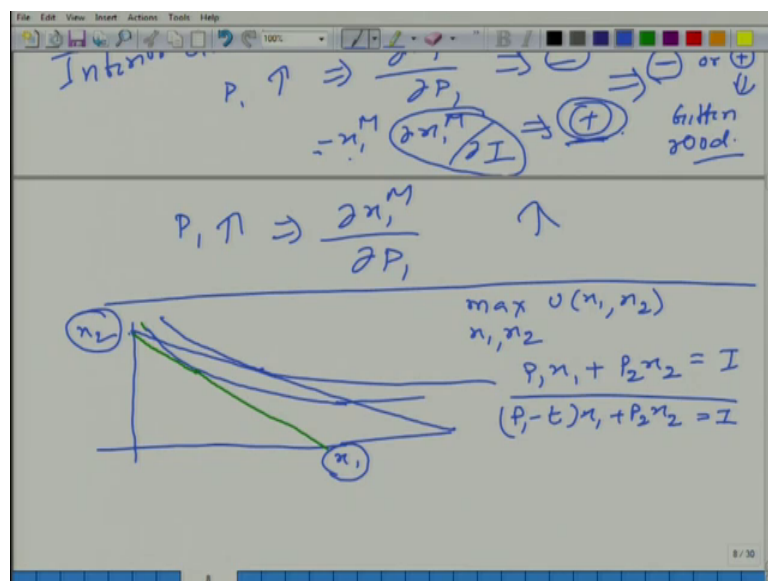 File Edit View Insert Actions Tools Help
100%
B I
P₁ ↑ ⇒ ∂P₁ ⇒ ⊖ ⇒ ⊖ or ⊕
= -x₁ᴹ (∂x₁ᴹ/∂I) ⇒ (+) Giffen
good.
P₁ ↑ ⇒ ∂x₁ᴹ/∂P₁ ↑
max U(x₁, x₂)
x₁, x₂
P₁x₁ + P₂x₂ = I
(P₁-t)x₁ + P₂x₂ = I
x₂
x₁
8 / 30
8